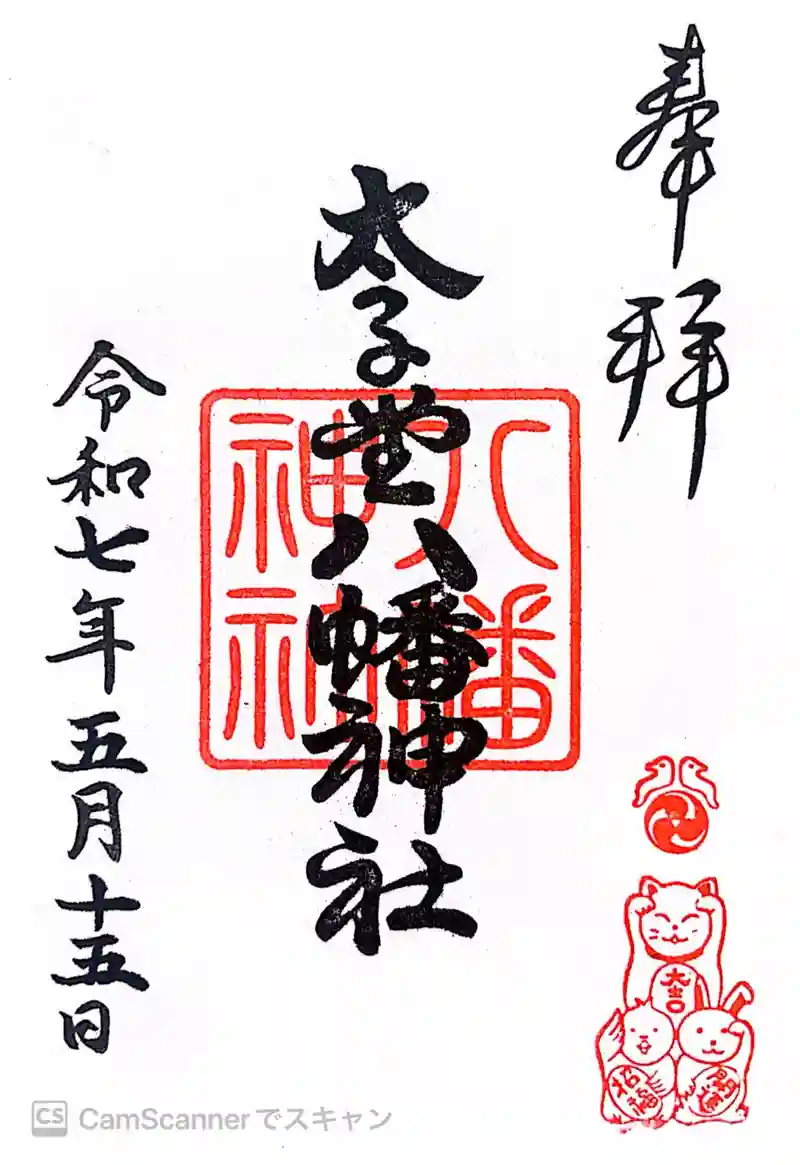 奉拝
太子堂八幡神社
令和七年五月十五日
八幡
神神
大吉
招福
開運
CS CamScannerでスキャン